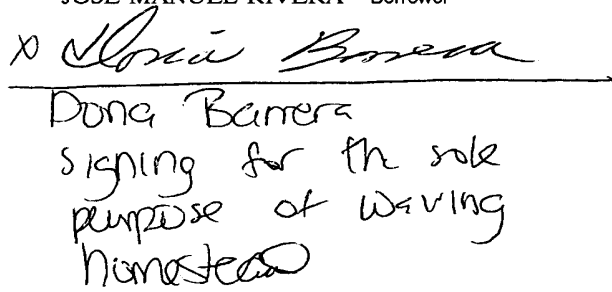 JOSE MANUEL RIVERA Borrower
x Doria Barrera
Dona Barrera
signing for th sole
purpose of waving
homestead